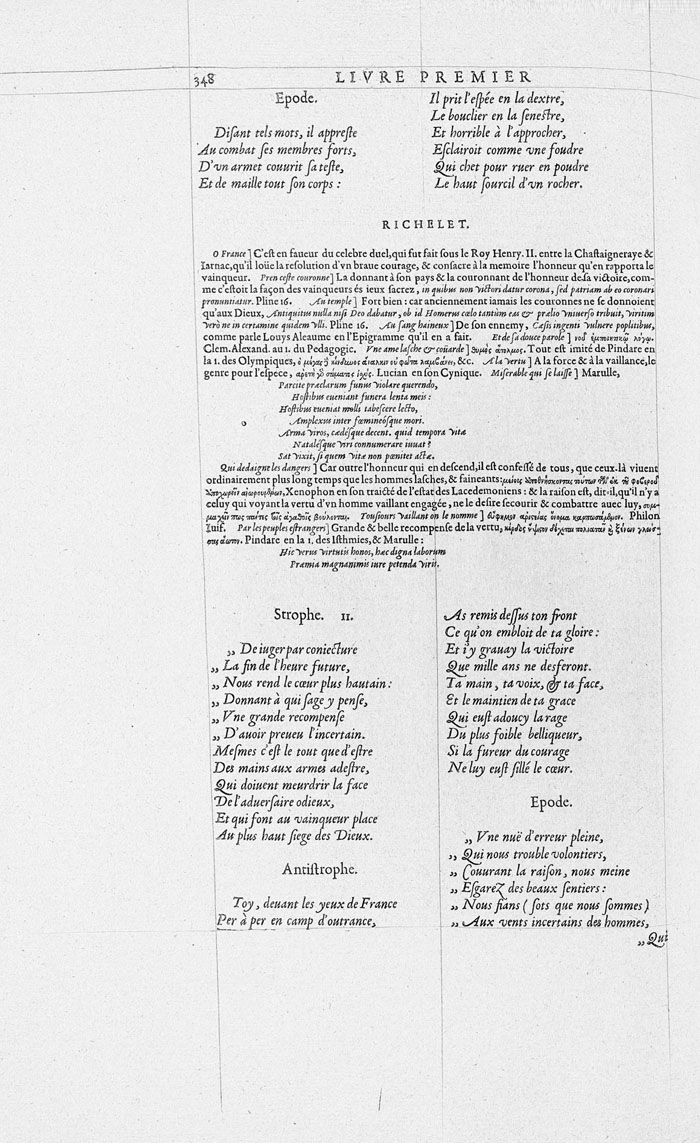 348 LIVRE PREMIER
Epode.
Disant tels mots, il appreste
Au combat ses membres forts,
D'vn armet couurit sa teste,
Et de maille tout son corps :
Il prit l'espée en la dextre,
Le bouclier en la senestre,
Et horrible à l'approcher,
Esclairoit comme vne foudre
Qui chet pour ruer en poudre
Le haut sourcil d'vn rocher.
RICHELET.
O France] C'est en faueur du celebre duel, qui fut fait sous le Roy Henry. II. entre la Chastaigneraye &
Iarnac, qu'il loüe la resolution d'vn braue courage, & consacre à la memoire l'honneur qu'en rapporta le
vainqueur. Pren ceste couronne] La donnant à son pays & la couronnant de l'honneur de sa victoire, com-
me c'estoit la façon des vainqueurs és ieux sacrez, in quibus non victori datur corona, sed patriam ab eo coronari
pronuntiatur. Pline 16. Au temple] Fort bien : car anciennement iamais les couronnes ne se donnoient
qu'aux Dieux, Antiquitus nulla nisi Deo dabatur, ob id Homerus cælo tantùm eas & prælio vniuerso tribuit, viritim
verò ne in certamine quidem vlli. Pline 16. Au sang haineux] De son ennemy, Cæsis ingenti vulnere poplitibus,
comme parle Louys Aleaume en l'Epigramme qu'il en a fait. Et de sa douce parole]
Clem. Alexand. au 1. du Pedagogic. Vne ame lasche & coüarde] Tout est imité de Pindare en
la 1. des Olympiques, &c. A la vertu] A la force & à la vaillance, le
genre pour l'espece, Lucian en son Cynique. Miserable qui se laisse] Marulle,
Parcite præclarum funus violare querendo,
Hostibus eueniant funera lenta meis :
Hostibus eueniat molli tabescere lecto,
Amplexus inter fœmineósque mori.
Arma viros, cædésque decent. quid tempora vitæ
Natalésque viri connumerare iuuat ?
Sat vixit, si quem vitæ non pœnitet actæ.
Qui dedaigne les dangers] Car outre l'honneur qui en descend, il est confessé de tous, que ceux-là viuent
ordinairement plus long temps que les hommes lasches, & faineants:
Xenophon en son traicté de l'estat des Lacedemoniens : & la raison est, dit-il, qu'il n'y a
celuy qui voyant la vertu d'vn homme vaillant engagée, ne le desire secourir & combattre auec luy,
Tousiours vaillant on le nomme] Philon
Iuif. Par les peuples estrangers] Grande & belle recompense de la vertu,
Pindare en la 1. des Isthmies, & Marulle :
Hic verus virtutis honos, hæc digna laborum
Præmia magnanimis iure petenda viris.
Strophe. II.
„ De iuger par coniecture
„ La fin de l'heure future,
„ Nous rend le cœur plus hautain :
„ Donnant à qui sage y pense,
„ Vne grande recompense
„ D'auoir preueu l'incertain.
Mesmes c'est le tout que d'estre
Des mains aux armes adestre,
Qui doiuent meurdrir la face
De l'aduersaire odieux,
Et qui font au vainqueur place
Au plus haut siege des Dieux.
Antistrophe.
Toy, deuant les yeux de France
Per à per en camp d'outrance,
As remis dessus ton front
Ce qu'on embloit de ta gloire :
Et i'y grauay la victoire
Que mille ans ne desferont.
Ta main, ta voix, & ta face,
Et le maintien de ta grace
Qui eust adoucy la rage
Du plus foible belliqueur,
Si la fureur du courage
Ne luy eust sillé le cœur.
Epode.
„ Vne nuë d'erreur pleine,
„ Qui nous trouble volontiers,
„ Couurant la raison, nous meine
„ Esgarez des beaux sentiers :
„ Nous fians ( sots que nous sommes )
„ Aux vents incertains des hommes,
„ Qui